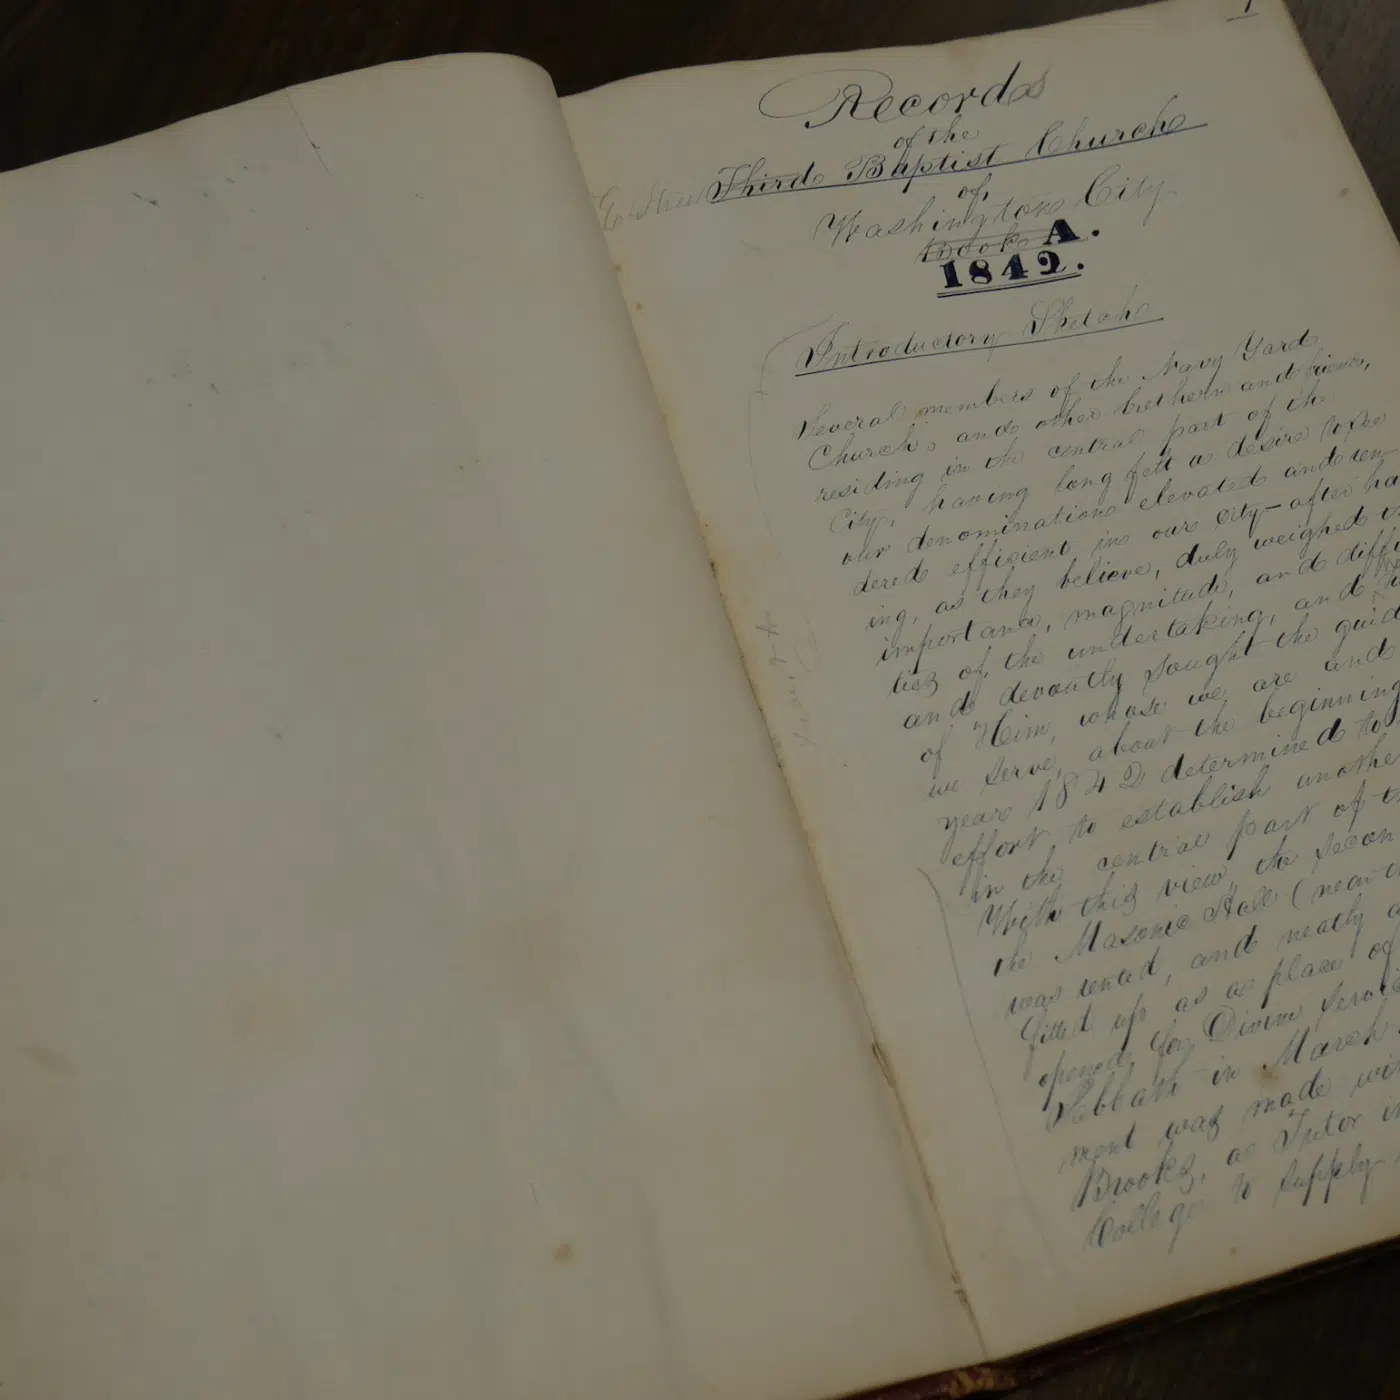 1
Records
of the
E Street Third Baptist Church
of
Washington City
Book A.
1842.
Introductory Sketch
Several members of the Navy Yard
Church, and other brethern and friends,
residing in the central part of the
City, having long felt a desire to see
our denomination elevated and ren-
dered efficient in our city — after ha
ing, as they believe, duly weighed
importance, magnitude, and diffi
ties of the undertaking, and
and devoutly sought the guid
of Him, whose we are and
we serve, about the beginning
year 1842 determined to
effort to establish anothe
in the central part of t
With this view, the secon
the Masonic Hall (near t
was rented, and neatly
fitted up as a place of
opened for Divine Servi
Sabbath in March
ment was made wi
Brooks, a Tutor in
College to supply